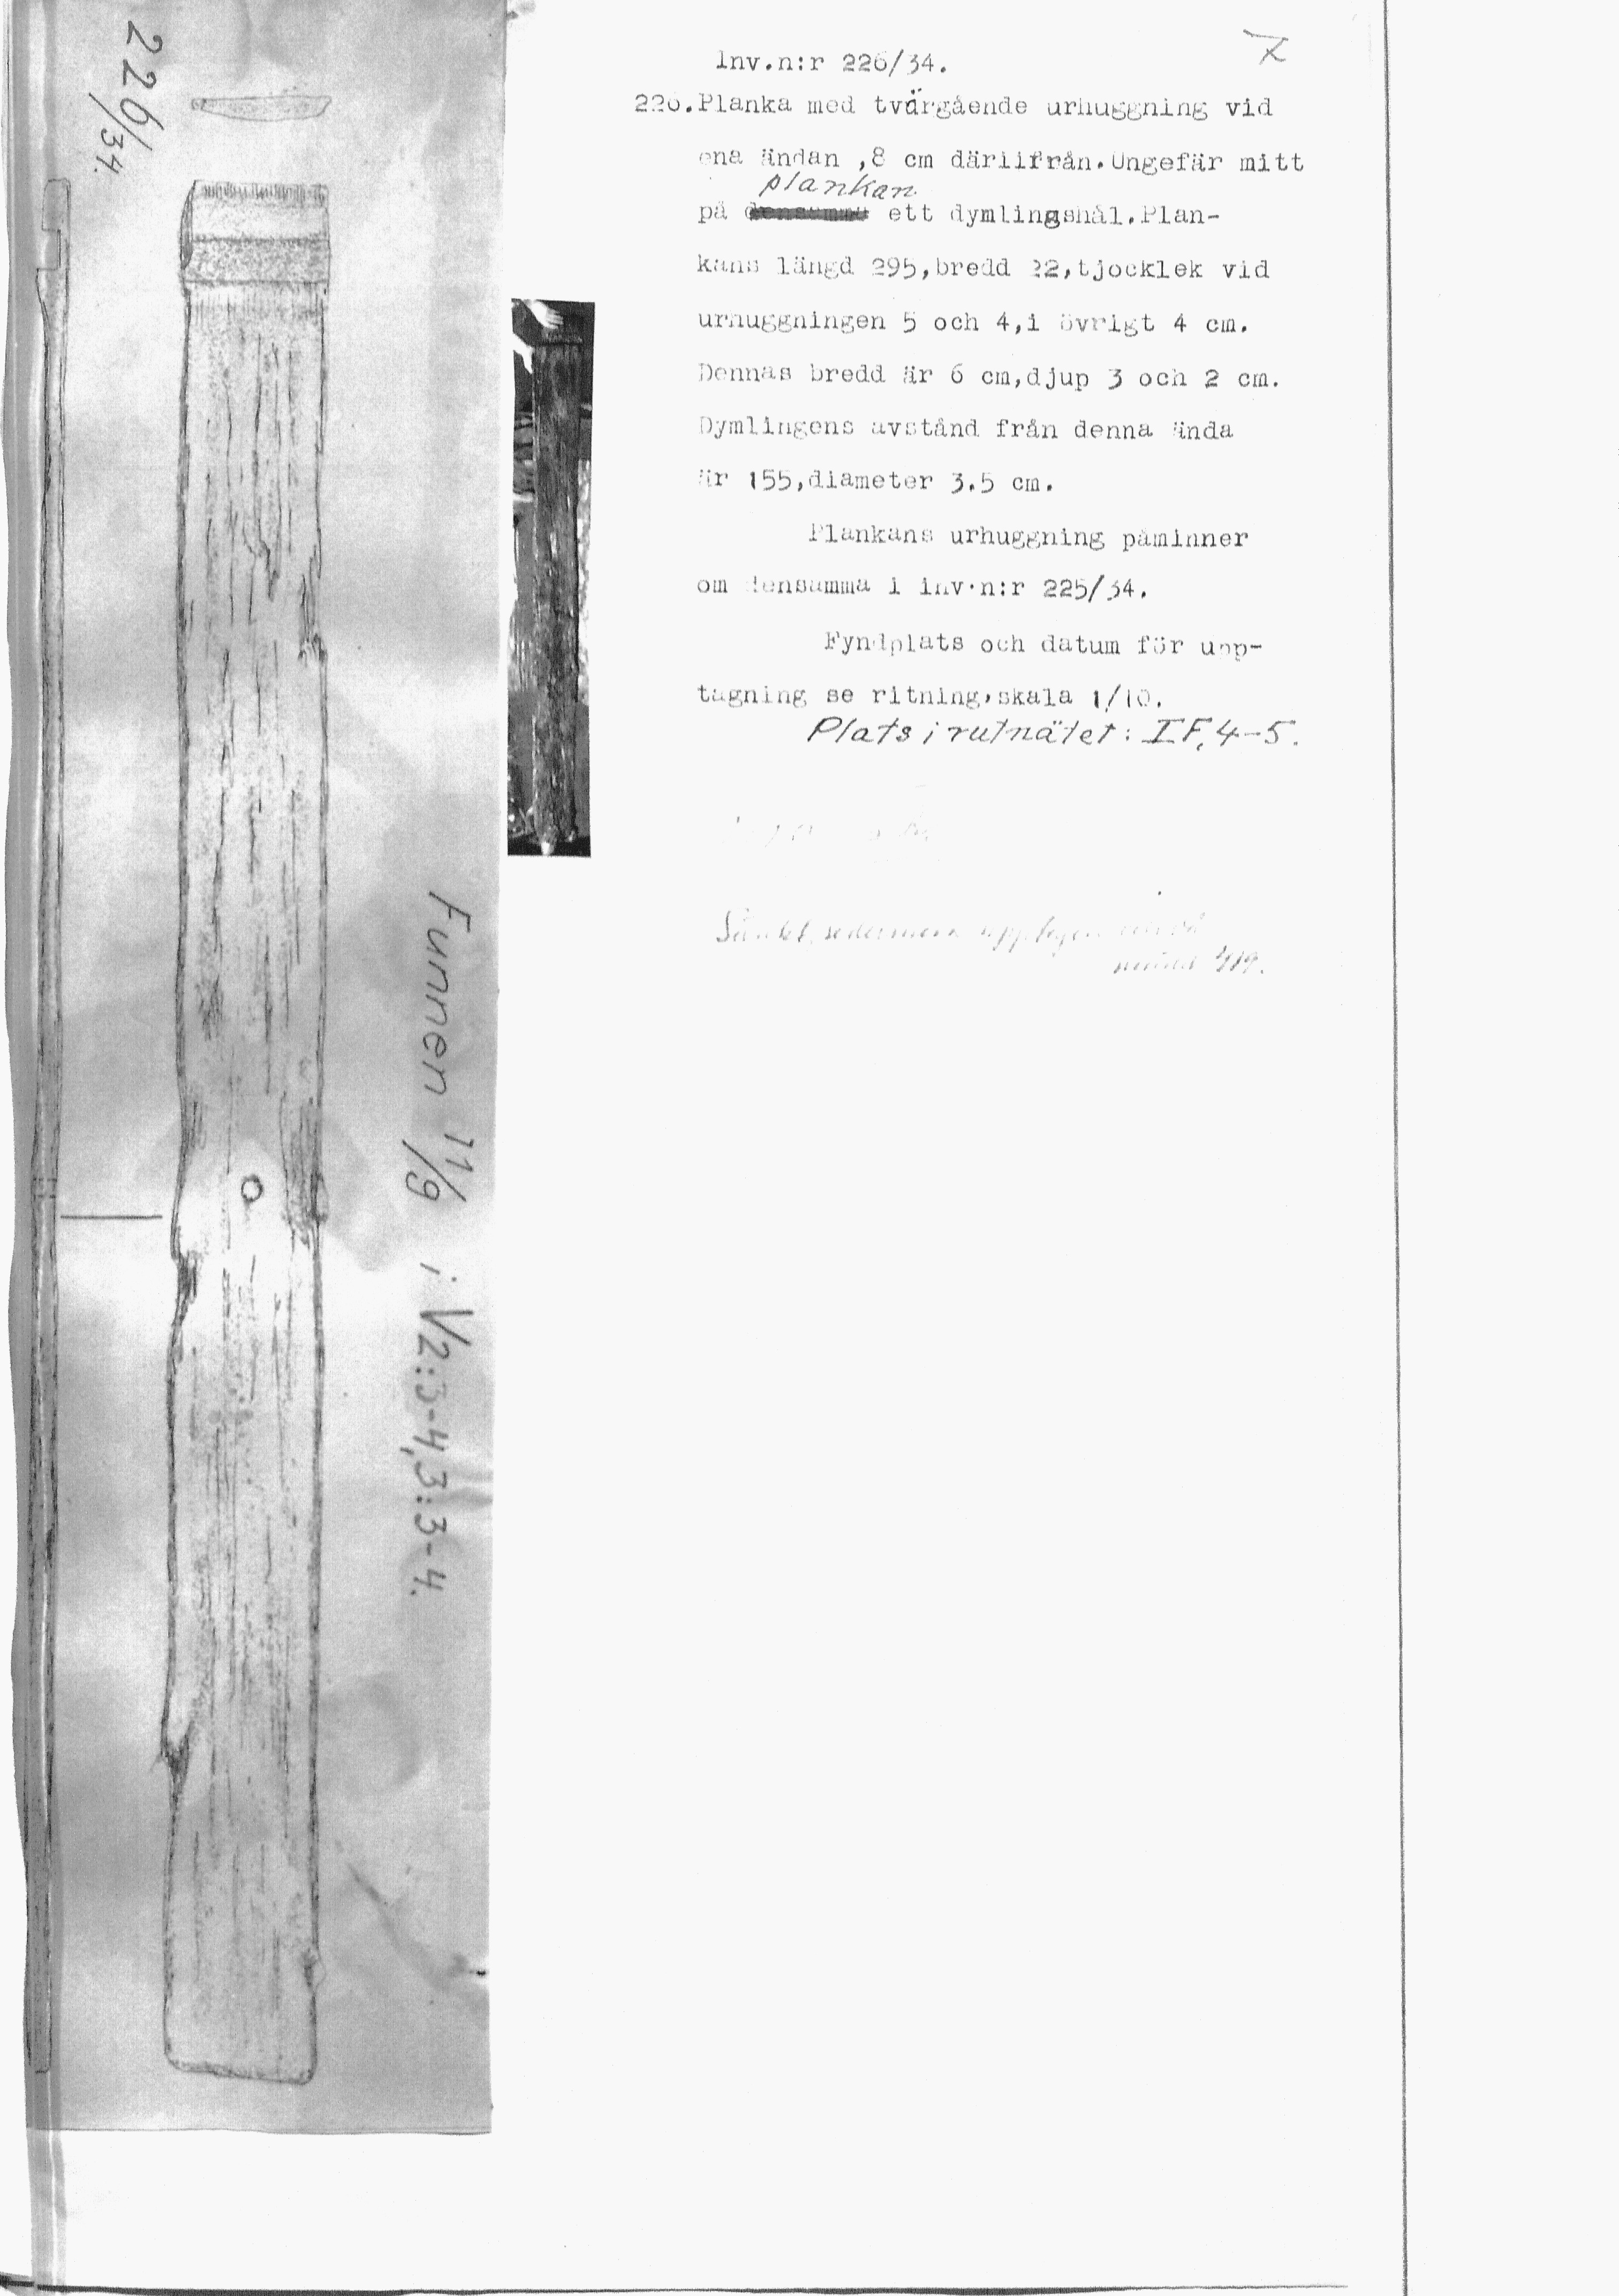 7
Inv.n:r 226/34.
226.Planka med tvärgående urhuggning vid
ena ändan ,8 cm därifrån.Ungefär mitt
plankan
på densamma ett dymlingshål.Plan-
kans längd 295,bredd 22,tjocklek vid
urhuggningen 5 och 4,i övrigt 4 cm.
Dennas bredd är 6 cm,djup 3 och 2 cm.
Dymlingens avstånd från denna ända
är 155,diameter 3.5 cm.
Plankans urhuggning påminner
om densamma i inv.n:r 225/34.
Fyndplats och datum för upp-
tagning se ritning,skala 1/10.
Plats i rutnätet: IF, 4-5.
Sänkt, sedermera upptagen
226/34.
Funnen 11/9 i V2:3-4,3:3-4.